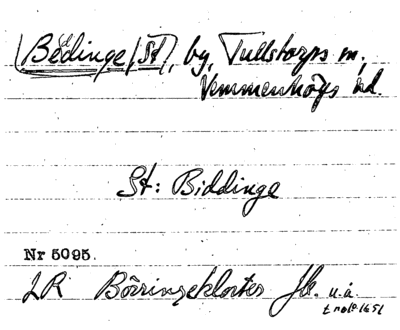 Bedinge (St), by, Tullstorps sn,
Vemmenhögs hd.
St: Biddinge
Nr 5095.
LR Börringekloster Jb. u.å.
t. nolt 1651